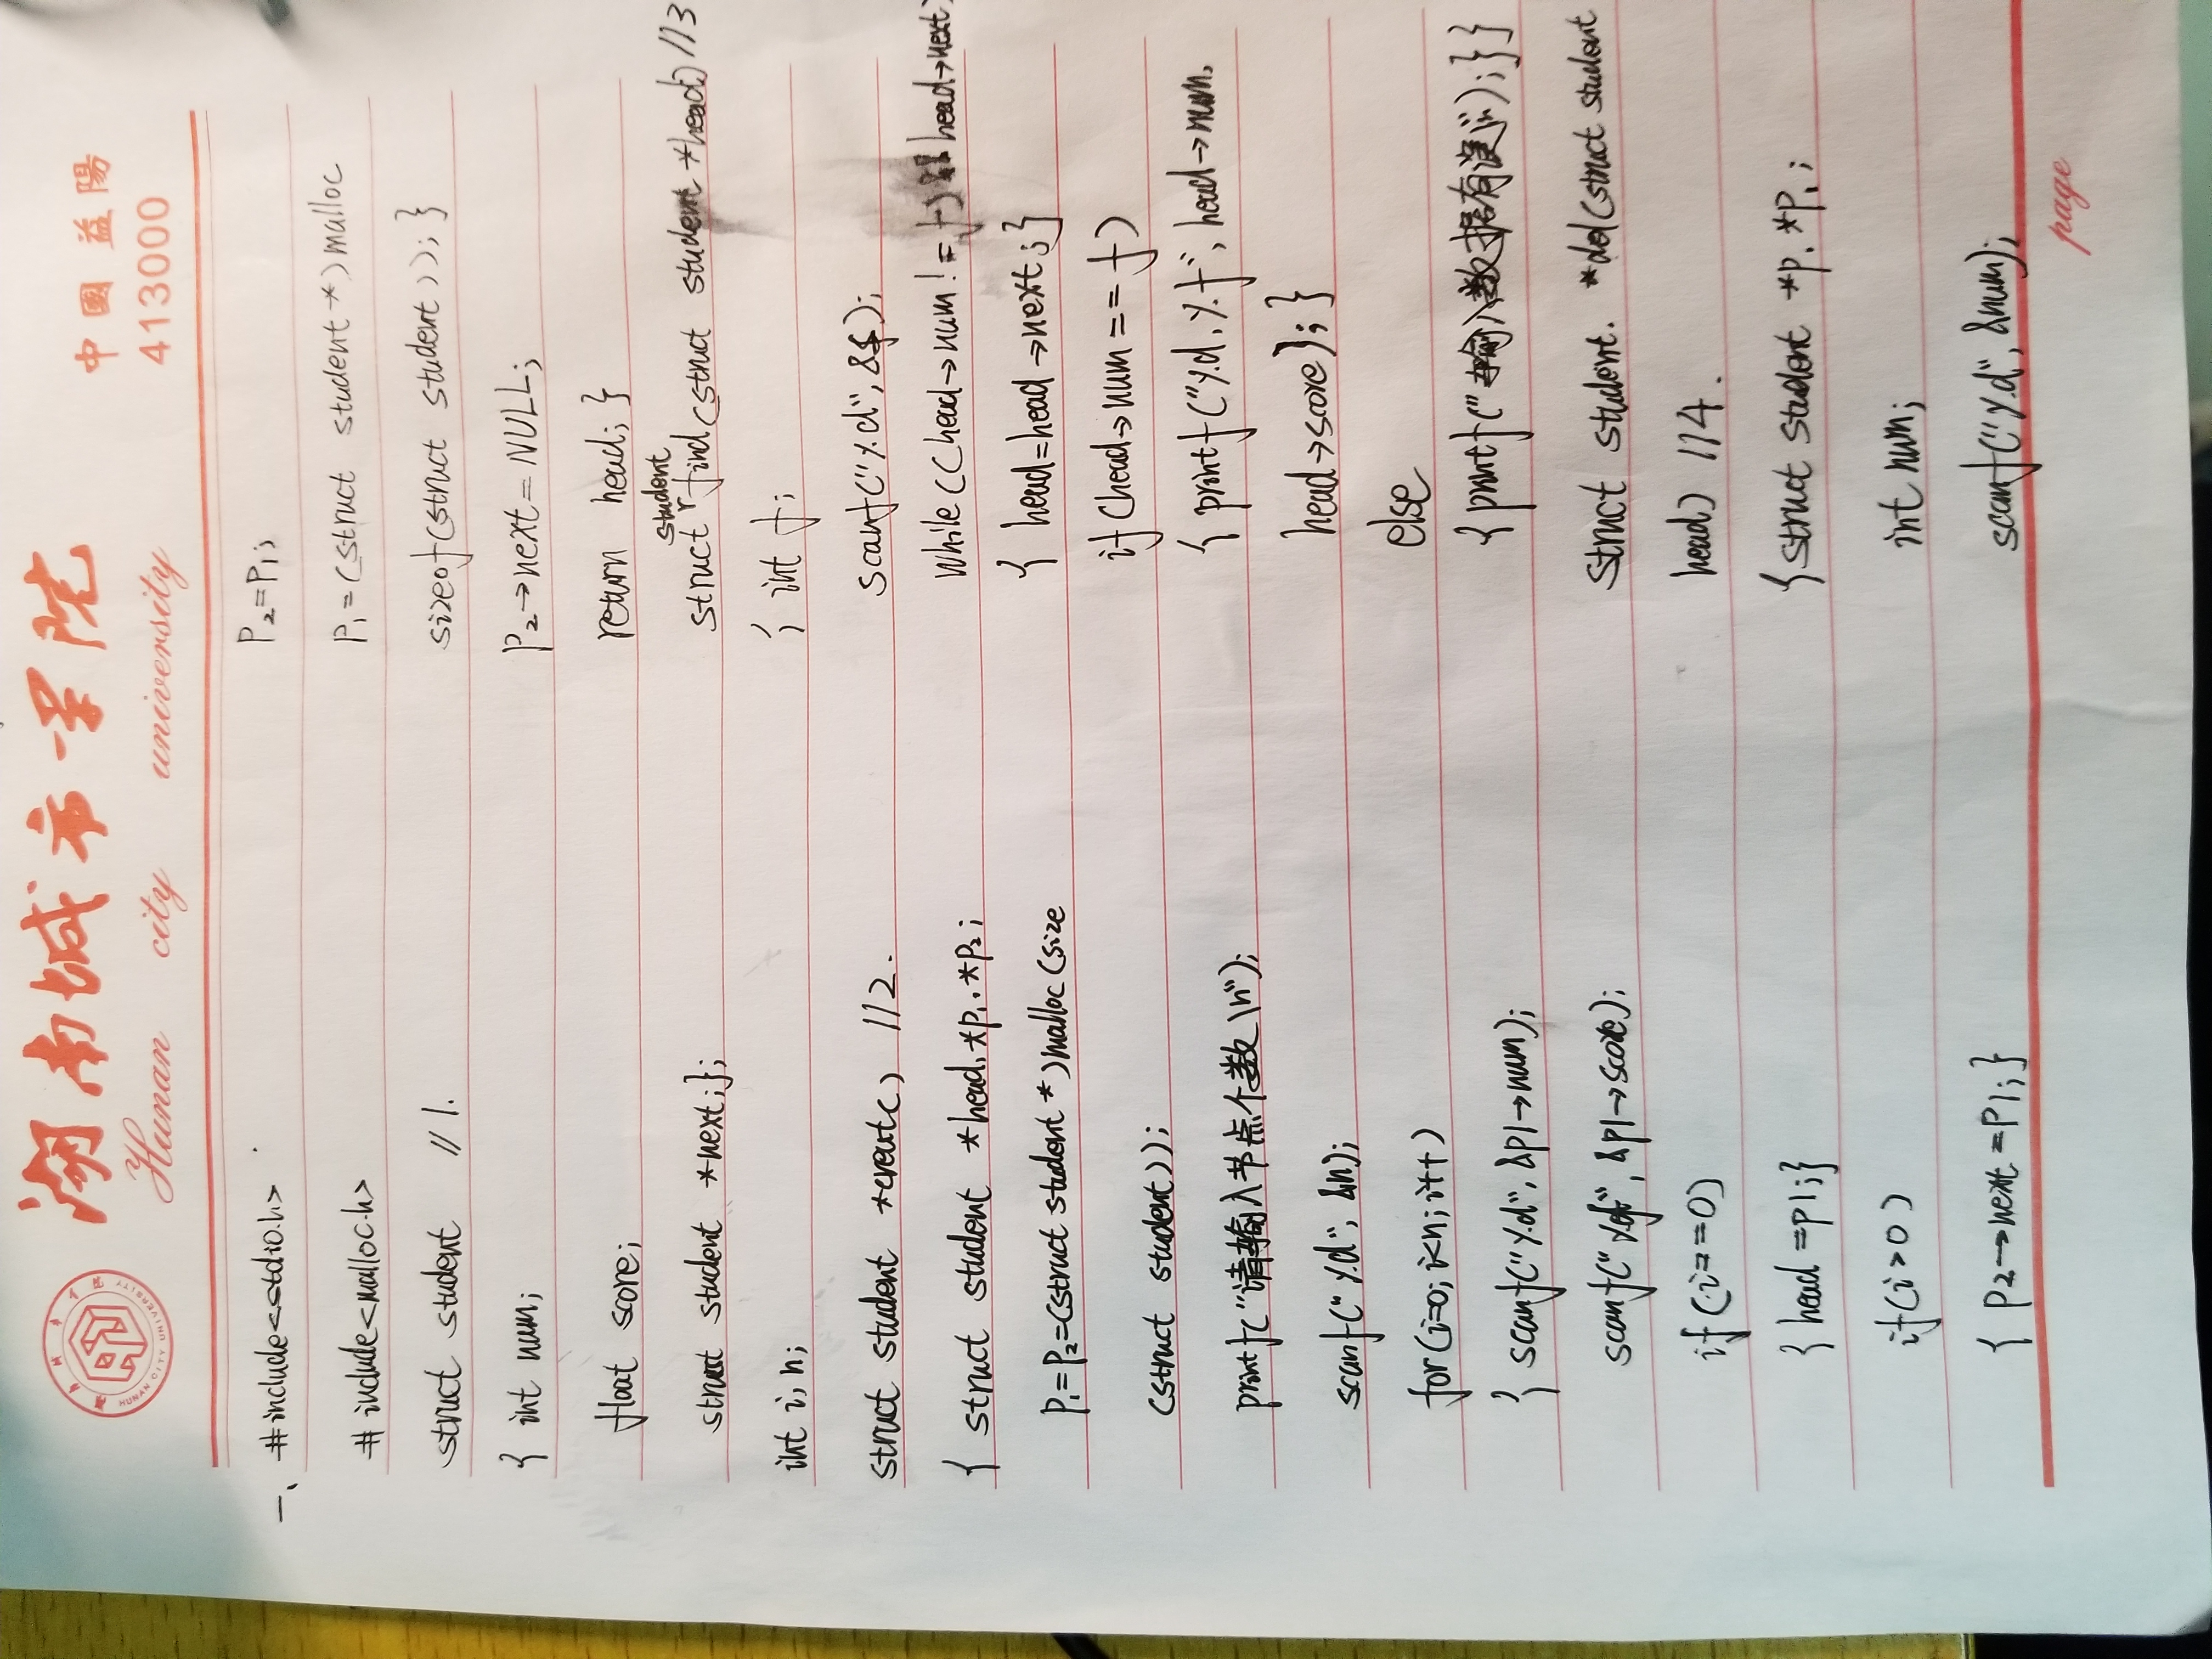 湖南城市学院
Hunan city university
中國 益陽
413000
湖南城市学院
HUNAN CITY UNIVERSITY
一、 #include<stdio.h>
# include<malloc.h>
struct student //1.
{ int num;
float score;
struct student *next;};
int i, n;
struct student *creat() //2.
{ struct student *head,*p1.*p2;
p1=p2=(struct student *)malloc(size
(struct student));
printf("请输入节点个数\n");
scanf("%d", &n);
for(i=0; i<n; i++)
{ scanf("%d", &p1→num);
scanf("%f", &p1→score);
if(i==0)
{ head =p1;}
if(i>0)
{ p2→next =p1;}
p2=p1;
p1=(struct student *)malloc
sizeof(struct student));}
p2→next=NULL;
return head; }
struct student find(struct student *head) //3
{ int f;
scanf("%d", &f);
while((head→num!=f)&&head→next)
{ head=head→next;}
if(head→num==f)
{ printf("%d, %f", head→num,
head→score);}
else
{ printf("输入数据有误!");}}
struct student. *del(struct student
head) //4.
{struct student *p, *p1;
int num;
scanf("%d", &num);
page